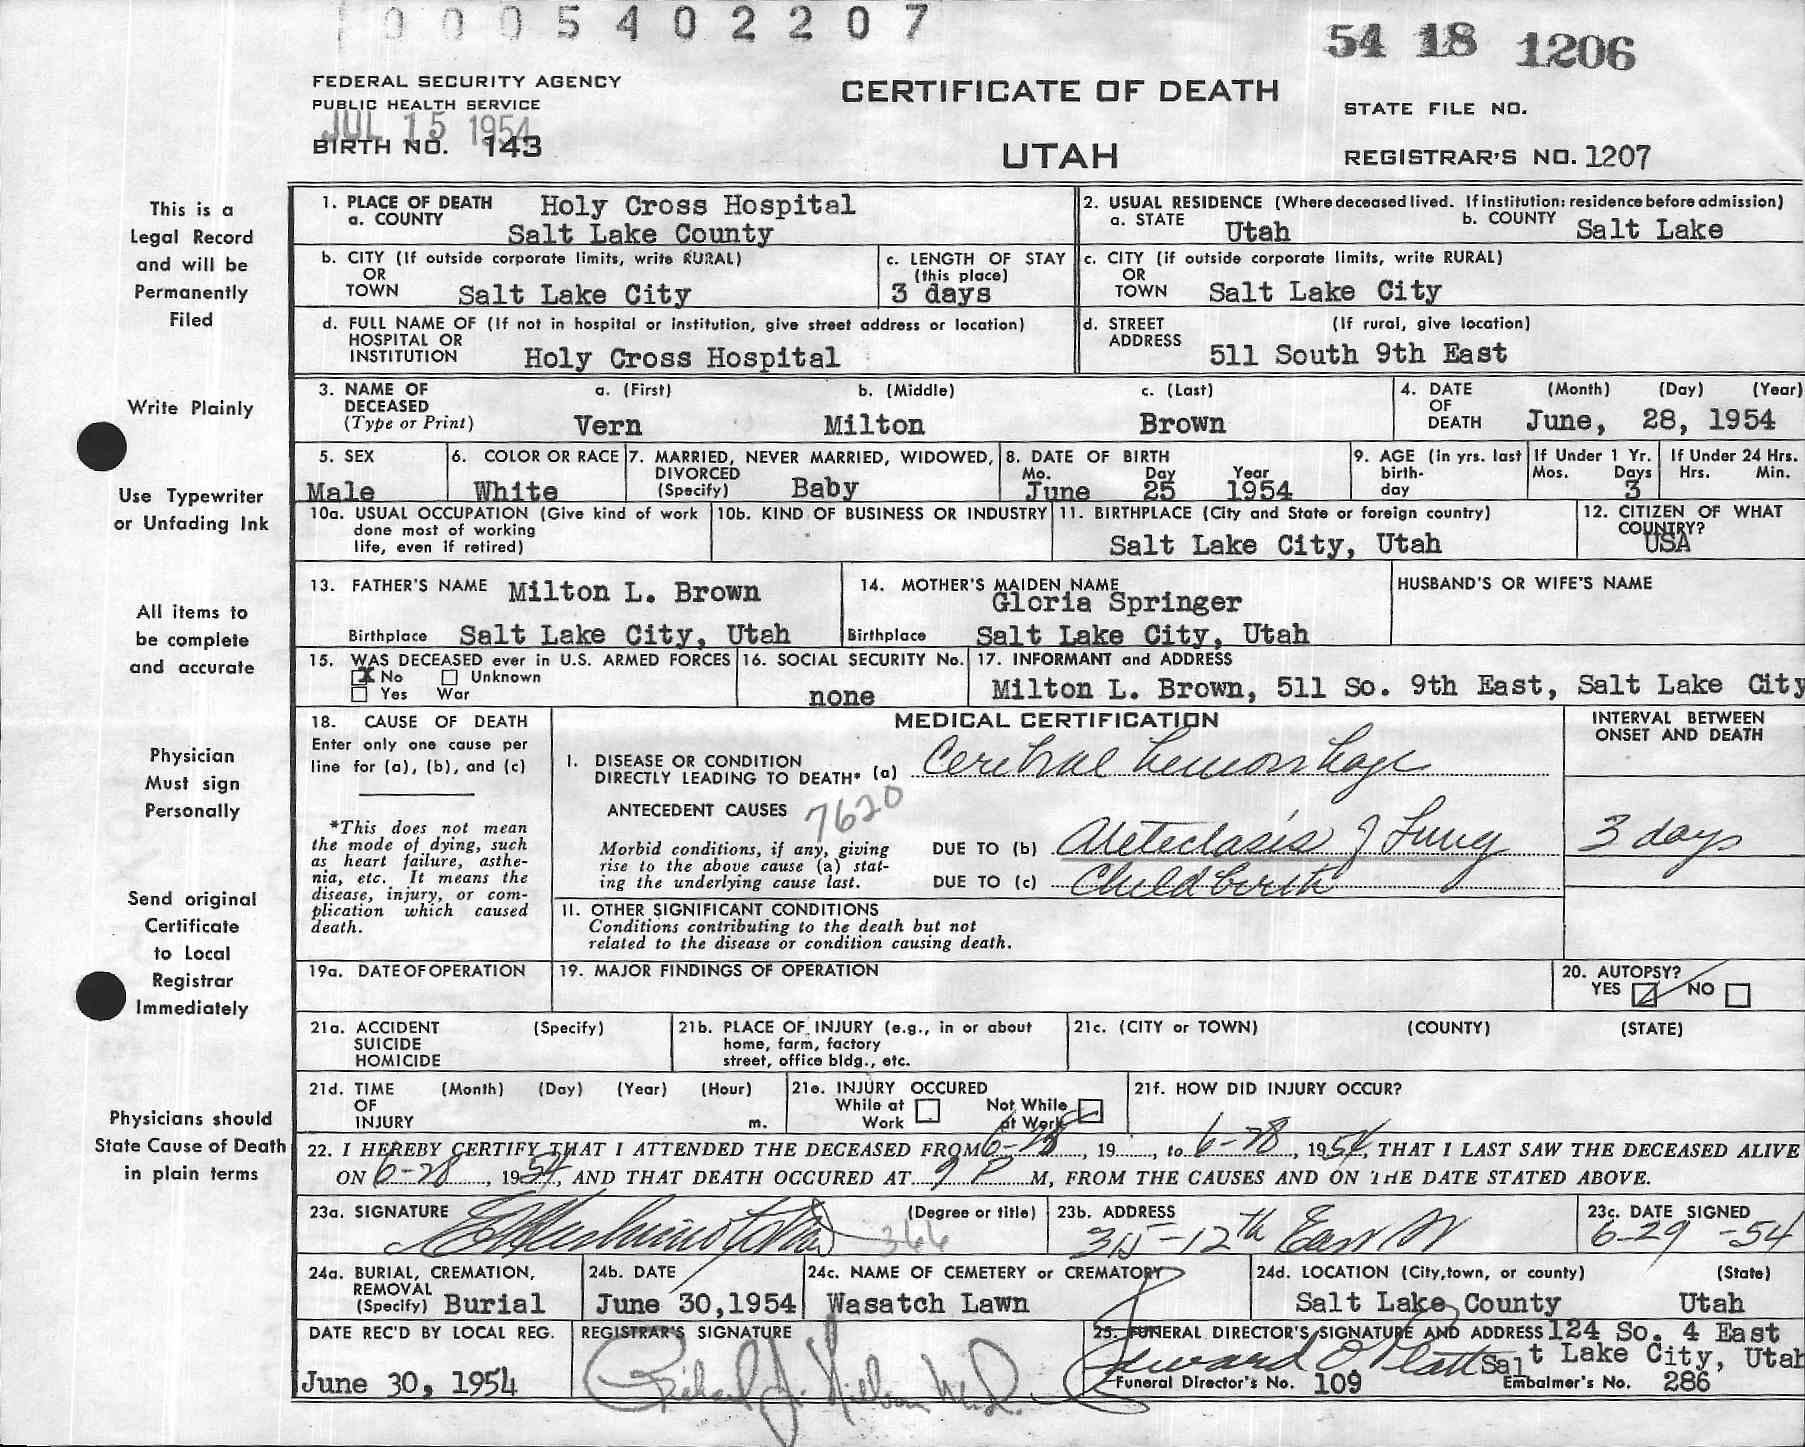 0005402207
54 18 1206
FEDERAL SECURITY AGENCY
PUBLIC HEALTH SERVICE
JUL 15 1954
BIRTH NO. 143
CERTIFICATE OF DEATH
UTAH
STATE FILE NO.
REGISTRAR'S NO. 1207
This is a
Legal Record
and will be
Permanently
Filed
Write Plainly
Use Typewriter
or Unfading Ink
All items to
be complete
and accurate
Physician
Must sign
Personally
Send original
Certificate
to Local
Registrar
Immediately
Physicians should
State Cause of Death
in plain terms
1. PLACE OF DEATH Holy Cross Hospital
a. COUNTY Salt Lake County
2. USUAL RESIDENCE (Where deceased lived. If institution: residence before admission)
a. STATE Utah b. COUNTY Salt Lake
b. CITY (If outside corporate limits, write RURAL)
OR
TOWN Salt Lake City
c. LENGTH OF STAY
(this place)
3 days
c. CITY (if outside corporate limits, write RURAL)
OR
TOWN Salt Lake City
d. FULL NAME OF (If not in hospital or institution, give street address or location)
HOSPITAL OR
INSTITUTION Holy Cross Hospital
d. STREET (If rural, give location)
ADDRESS
511 South 9th East
3. NAME OF a. (First) b. (Middle) c. (Last)
DECEASED
(Type or Print) Vern Milton Brown
4. DATE (Month) (Day) (Year)
OF
DEATH June, 28, 1954
5. SEX
Male
6. COLOR OR RACE
White
7. MARRIED, NEVER MARRIED, WIDOWED,
DIVORCED
(Specify) Baby
8. DATE OF BIRTH
Mo. Day Year
June 25 1954
9. AGE (in yrs. last
birth-
day
If Under 1 Yr.
Mos. Days
3
If Under 24 Hrs.
Hrs. Min.
10a. USUAL OCCUPATION (Give kind of work
done most of working
life, even if retired)
10b. KIND OF BUSINESS OR INDUSTRY
11. BIRTHPLACE (City and State or foreign country)
Salt Lake City, Utah
12. CITIZEN OF WHAT
COUNTRY?
USA
13. FATHER'S NAME Milton L. Brown
Birthplace Salt Lake City, Utah
14. MOTHER'S MAIDEN NAME
Gloria Springer
Birthplace Salt Lake City, Utah
HUSBAND'S OR WIFE'S NAME
15. WAS DECEASED ever in U.S. ARMED FORCES
X No Unknown
Yes War
16. SOCIAL SECURITY No.
none
17. INFORMANT and ADDRESS
Milton L. Brown, 511 So. 9th East, Salt Lake City
18. CAUSE OF DEATH
Enter only one cause per
line for (a), (b), and (c)
*This does not mean
the mode of dying, such
as heart failure, asthe-
nia, etc. It means the
disease, injury, or com-
plication which caused
death.
MEDICAL CERTIFICATION
I. DISEASE OR CONDITION
DIRECTLY LEADING TO DEATH* (a) Cerebral hemorrhage
ANTECEDENT CAUSES 7620
Morbid conditions, if any, giving
rise to the above cause (a) stat-
ing the underlying cause last.
DUE TO (b) Ateteclasis of Lung
DUE TO (c) Childbirth
INTERVAL BETWEEN
ONSET AND DEATH
3 days
II. OTHER SIGNIFICANT CONDITIONS
Conditions contributing to the death but not
related to the disease or condition causing death.
19a. DATE OF OPERATION
19. MAJOR FINDINGS OF OPERATION
20. AUTOPSY?
YES NO
21a. ACCIDENT (Specify)
SUICIDE
HOMICIDE
21b. PLACE OF INJURY (e.g., in or about
home, farm, factory
street, office bldg., etc.
21c. (CITY or TOWN) (COUNTY) (STATE)
21d. TIME (Month) (Day) (Year) (Hour)
OF
INJURY m.
21e. INJURY OCCURED
While at Not While
Work at Work
21f. HOW DID INJURY OCCUR?
22. I HEREBY CERTIFY THAT I ATTENDED THE DECEASED FROM 6-25, 19, to 6-28, 1954, THAT I LAST SAW THE DECEASED ALIVE
ON 6-28, 1954, AND THAT DEATH OCCURED AT 9 P M, FROM THE CAUSES AND ON THE DATE STATED ABOVE.
23a. SIGNATURE (Degree or title)
366
23b. ADDRESS
315-12th East
23c. DATE SIGNED
6-29-54
24a. BURIAL, CREMATION,
REMOVAL
(Specify) Burial
24b. DATE
June 30,1954
24c. NAME OF CEMETERY or CREMATORY
Wasatch Lawn
24d. LOCATION (City,town, or county) (State)
Salt Lake County Utah
DATE REC'D BY LOCAL REG.
June 30, 1954
REGISTRAR'S SIGNATURE
Richard J. Nelson M.D.
25. FUNERAL DIRECTOR'S SIGNATURE AND ADDRESS 124 So. 4 East
Edward O Platt Salt Lake City, Utah
Funeral Director's No. 109 Embalmer's No. 286